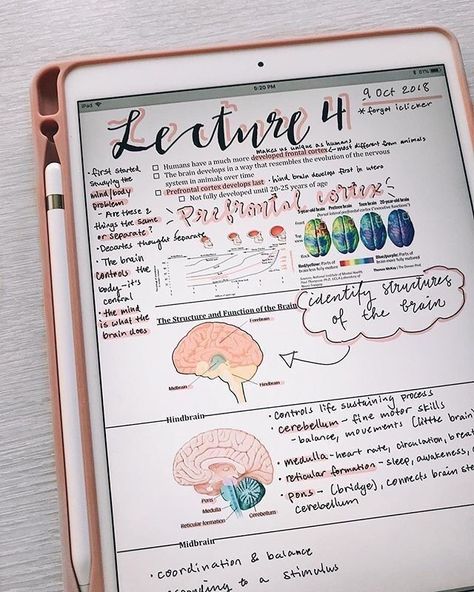 iPad
5:20 PM
81%
Lecture 4
9 Oct 2018
* forgot iclicker
makes us unique as humans
Humans have a much more developed frontal cortex
most different from animals
The brain develops in a way that resembles the evolution of the nervous
system in animals over time
hind brain develops first in utero
Prefrontal cortex develops last
Not fully developed until 20-25 years of age
• first started
studying the
mind/body
problem
- Are these 2
things the same
or separate?
• Decartes thought separate
• The brain
controls the
body - it's
central
• the mind
is what the
brain does
Prefrontal cortex
5-year-old brain
Preteen brain
Teen brain
20-year-old brain
Dorsal lateral prefrontal cortex ("executive functions")
Red/yellow: Parts of
brain less fully mature
Blue/purple: Parts of
identify structures
of the brain
The Structure and Function of the Brain
Cerebrum
Midbrain
Hindbrain
Hindbrain
• controls life sustaining process
• cerebellum - fine motor skills
- balance, movements (little brain
• medulla - heart rate, circulation, breat
• reticular formation - sleep, awareness,
• pons - (bridge), connects brain ste
cerebellum
Pons
Medulla
Reticular formation
Cerebellum
Midbrain
• coordination & balance
to a stimulus